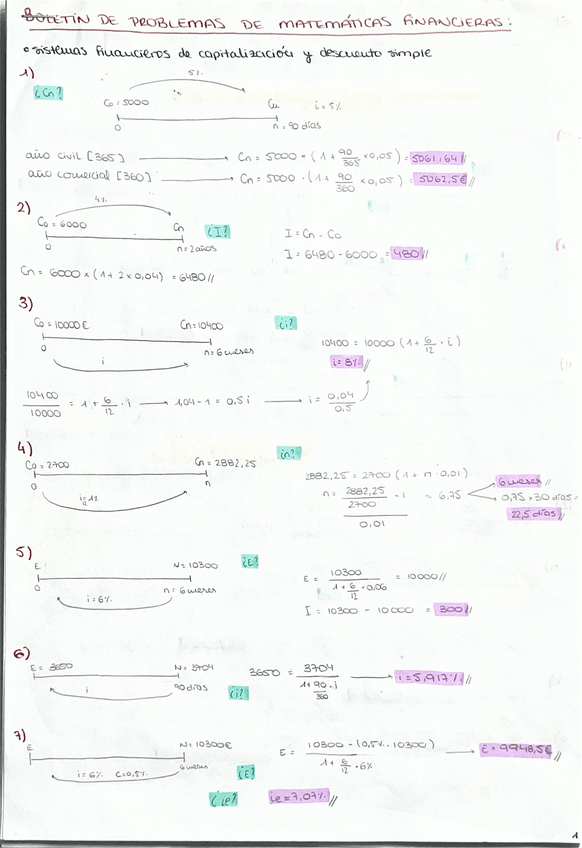 BOLETÍN DE PROBLEMAS DE MATEMÁTICAS FINANCIERAS:
o sistemas financieros de capitalización y descuento simple
1)
5%
¿Cn?
Co = 5000 Cn i = 5%
0 n = 90 días
año civil [365] → Cn = 5000 · (1 + 90/365 × 0,05) = 5061,64//
año comercial [360] → Cn = 5000 · (1 + 90/360 × 0,05) = 5062,5€//
2)
4%
Co = 6000 Cn ¿I? I = Cn - Co
0 n = 2 años I = 6480 - 6000 = 480//
Cn = 6000 × (1 + 2 × 0,04) = 6480//
3)
Co = 10000€ Cn = 10400 ¿i?
0 n = 6 meses 10400 = 10000 (1 + 6/12 · i)
i i = 8%//
10400/10000 = 1 + 6/12 · i → 1,04 - 1 = 0,5 i → i = 0,04/0,5
4)
Co = 2700 Cn = 2882,25 ¿n?
0 n 2882,25 = 2700 (1 + n · 0,01)
n = (2882,25/2700 - 1)/0,01 = 6,75 6 meses//
0,75 × 30 días =
22,5 días//
5)
E N = 10300 ¿E?
0 n = 6 meses E = 10300/(1 + 6/12 · 0,06) = 10000//
i = 6% I = 10300 - 10000 = 300//
6)
E = 3650 N = 3704 3650 = 3704/(1 + 90/360 · i) → i = 5,917%//
i 90 días ¿i?
7)
E N = 10300€ E = (10300 - (0,5% · 10300))/(1 + 6/12 · 6%) → E = 9948,5€//
i = 6% C = 0,5% 6 meses ¿E?
¿ie? ie = 7,07%//
1